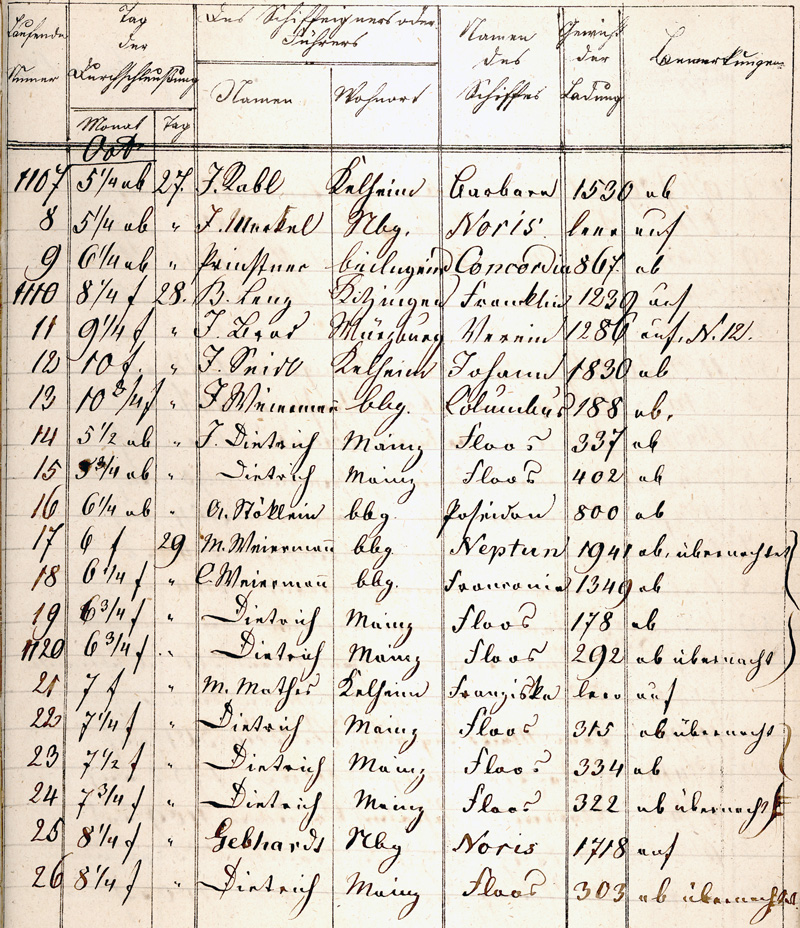 Laufende Numer | Tag der Durchschleußung | Des Schiffeigners oder Führers | Namen des Schiffes | Gewicht der Ladung | Bemerkungen
Monat | Tag | Namen | Wohnort
Oct
1107 5 1/4 ab 27. J. Rabl Kelheim Barbara 1530 ab
8 5 1/4 ab " J. Merkel Nbg. Noris leer auf
9 6 1/4 ab " Prinstner Concordia 867. ab
1110 8 1/4 f 28. B. Lenz Kitzingen Franklin 1239 auf
11 9 1/4 f " J. Würzburg Verein 1286 auf. N. 12.
12 10 f. " J. Seidl Kelheim Johann 1830 ab
13 10 3/4 f " J Weiermann bbg. Columbus 188 ab.
14 5 1/2 ab " J. Dietrich Mainz Floos 337 ab
15 3/4 ab " Dietrich Mainz Floos 402 ab
16 6 1/4 ab " A. Stöklein bbg. Poseidon 800 ab
17 6 f 29 M. Weiermann bbg. Neptun 1941 ab, übernachtet
18 6 1/4 f " C. Weiermann bbg. Franconia 1349 ab
19 6 3/4 f " Dietrich Mainz Floos 178 ab
1120 6 3/4 f " Dietrich Mainz Floos 292 ab übernacht
21 7 f " M. Mathes Kelheim Franziska leer auf
22 7 1/4 f " Dietrich Mainz Floos 315 ab übernacht
23 7 1/2 f " Dietrich Mainz Floos 334 ab
24 7 3/4 f " Dietrich Mainz Floos 322 ab übernacht
25 8 1/4 f " Gebhardt Nbg Noris 1718 auf
26 8 1/4 f " Dietrich Mainz Floos 303 ab übernachtet